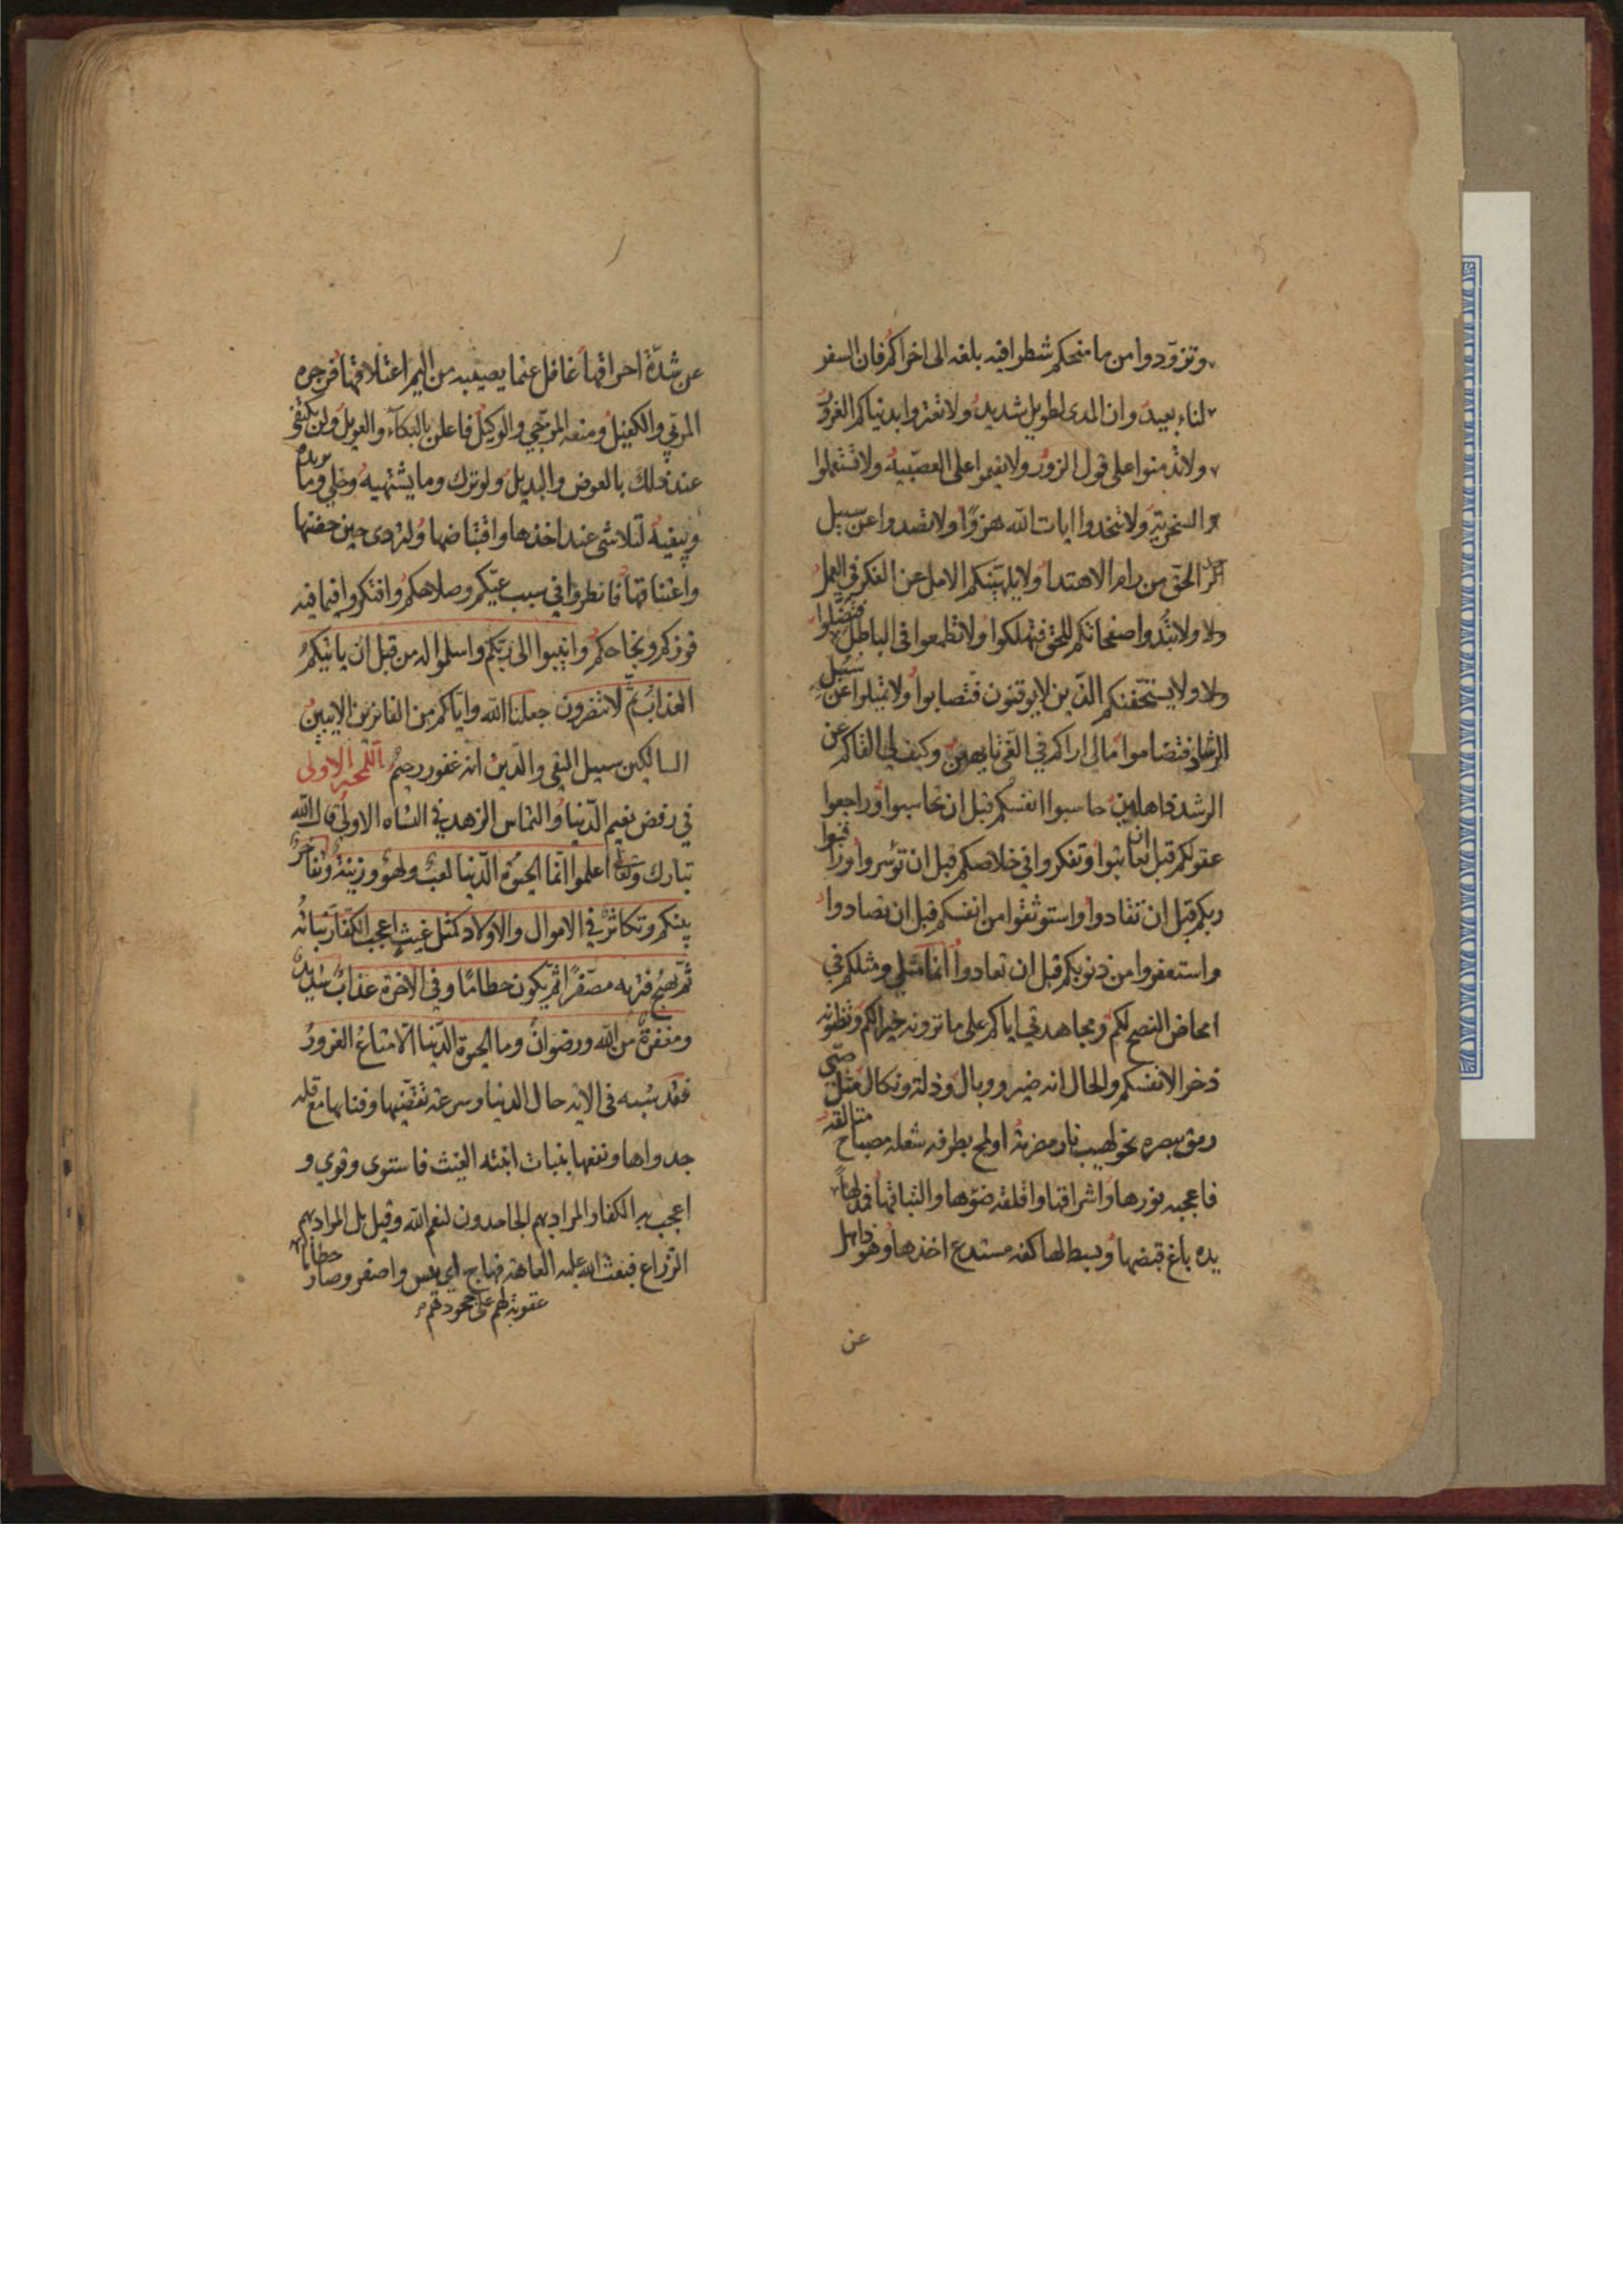 وتزودوا من ما منحكم شطرا فيه بلغه الى اخراكم فان السفر
لناء بعيد وان المدى لطويل شديد ولا تغتروا بدنياكم الغرور
ولا تدمنوا على قول الزور ولا تقيموا على العصبيه ولا تستعملوا
السخريه ولا تتخذوا ايات الله هزوا ولا تصدوا عن سبيل
الحق من رام الاهتدا ولا يلهينكم الامل عن الفكر في العمل
ولا تبدوا صفحاتكم للحق فتهلكوا ولا تطمعوا في الباطل فتضلوا
ولا يستخفنكم الذين لا يوقنون فتصابوا ولا تميلوا عن سبل
الرشاد فتضاموا مالي اراكم في الغي تايهين وكيف لي الفاكم عن
الرشد ذاهلين حاسبوا انفسكم قبل ان تحاسبوا وراجعوا
عقولكم قبل ان تعاتبوا وتفكروا في خلاصكم قبل ان تؤسروا وراقبوا
ربكم قبل ان تقادوا واستوثقوا من انفسكم قبل ان تصادوا
واستغفروا من ذنوبكم قبل ان تعادوا انما مثلي ومثلكم في
امحاض النصح لكم ومجاهدتي اياكم على ما ترونه خيرا لكم وتظنونه
ذخرا لانفسكم والحال انه ضير ووبال وذلة ونكال مثل صبي
رمق ببصره نحو لهيب نار مضرمة او لمح بطرفه شعله مصباح متالقه
فاعجبه نورها واشراقها واقلقه ضوءها والتباثها فمد لها
يده باغ قبضها وبسط لها كفه مستدع اخذها وهو ذاهل
عن
عن شدة احراقها غافل عنما يصيبه من اليم اعتلاقها فزجره
المربي والكفيل ومنعه المرجي والوكيل فاعلن بالبكاء والعويل ولن يكتفي
عند ذلك بالعوض والبديل ولو ترك وما يشتهيه وخلي وما يريده
ويبغيه لتلاشى عند اخذها واقتباضها ولتردى حين حضنها
واعتناقها فانظروا في سبب غيكم وصلاحكم وافتكروا فيما فيه
فوزكم ونجاحكم وانيبوا الى ربكم واسلموا له من قبل ان ياتيكم
العذاب ثم لا تنصرون جعلنا الله واياكم من الفائزين الايبين
السالكين سبيل التقى والدين انه غفور رحيم اللمحة الاولى
في رفض نعيم الدنيا والتماس الزهد في النشاه الاولى قال الله
تبارك وتعالى اعلموا انما الحيوة الدنيا لعب ولهو وزينة وتفاخر
بينكم وتكاثر في الاموال والاولاد كمثل غيث اعجب الكفار نباته
ثم يهيج فتريه مصفرا ثم يكون حطاما وفي الاخرة عذاب شديد
ومغفرة من الله ورضوان وما الحيوة الدنيا الا متاع الغرور
فقد شبه في الايه حال الدنيا وسرعة تقضيها وفنايها مع قله
جدواها ونفعها بنبات انبته الغيث فاستوى وقوي و
اعجب به الكفار والمراد بهم الجاحدون لنعم الله وقيل بل المراد بهم
الزراع فبعث الله عليه العاهة فهاج اي يبس واصفر وصار حطاما
عقوبة لهم على جحودهم